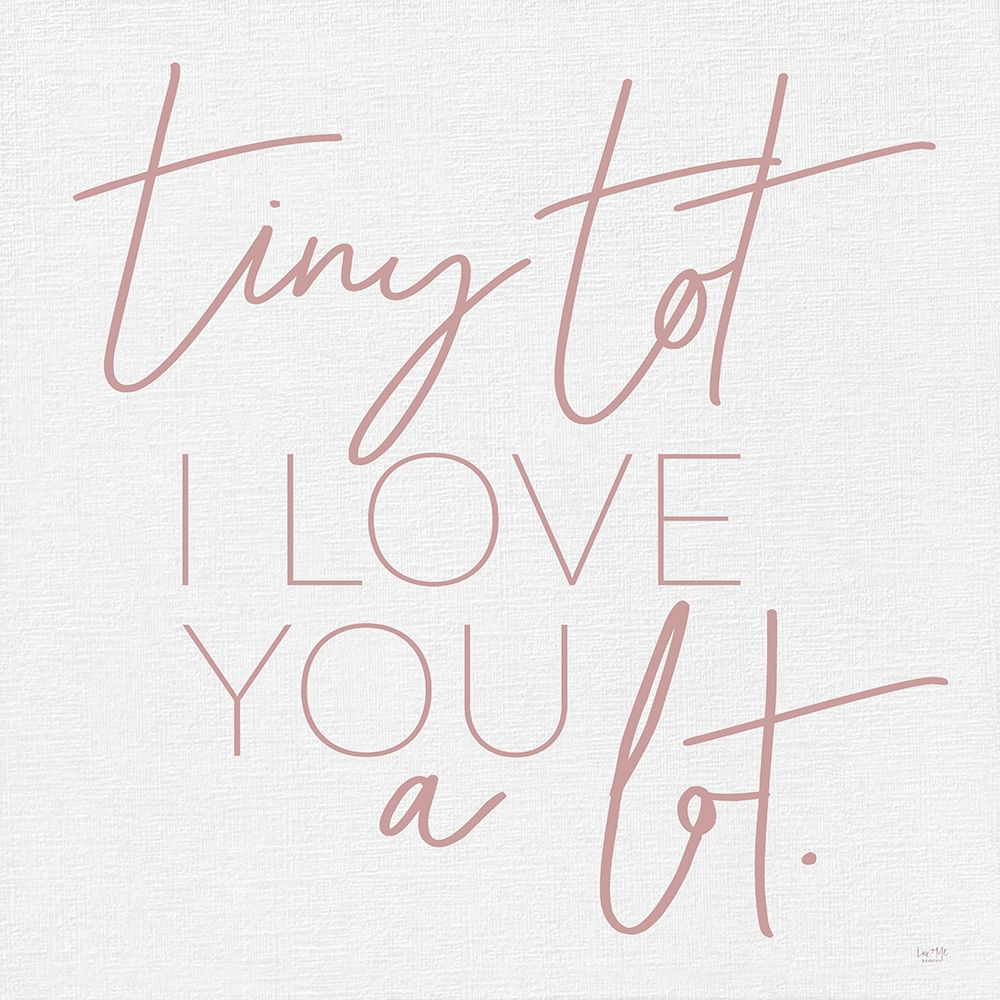 tiny tot
I LOVE
YOU
a lot.
Lux + Me
DESIGNS